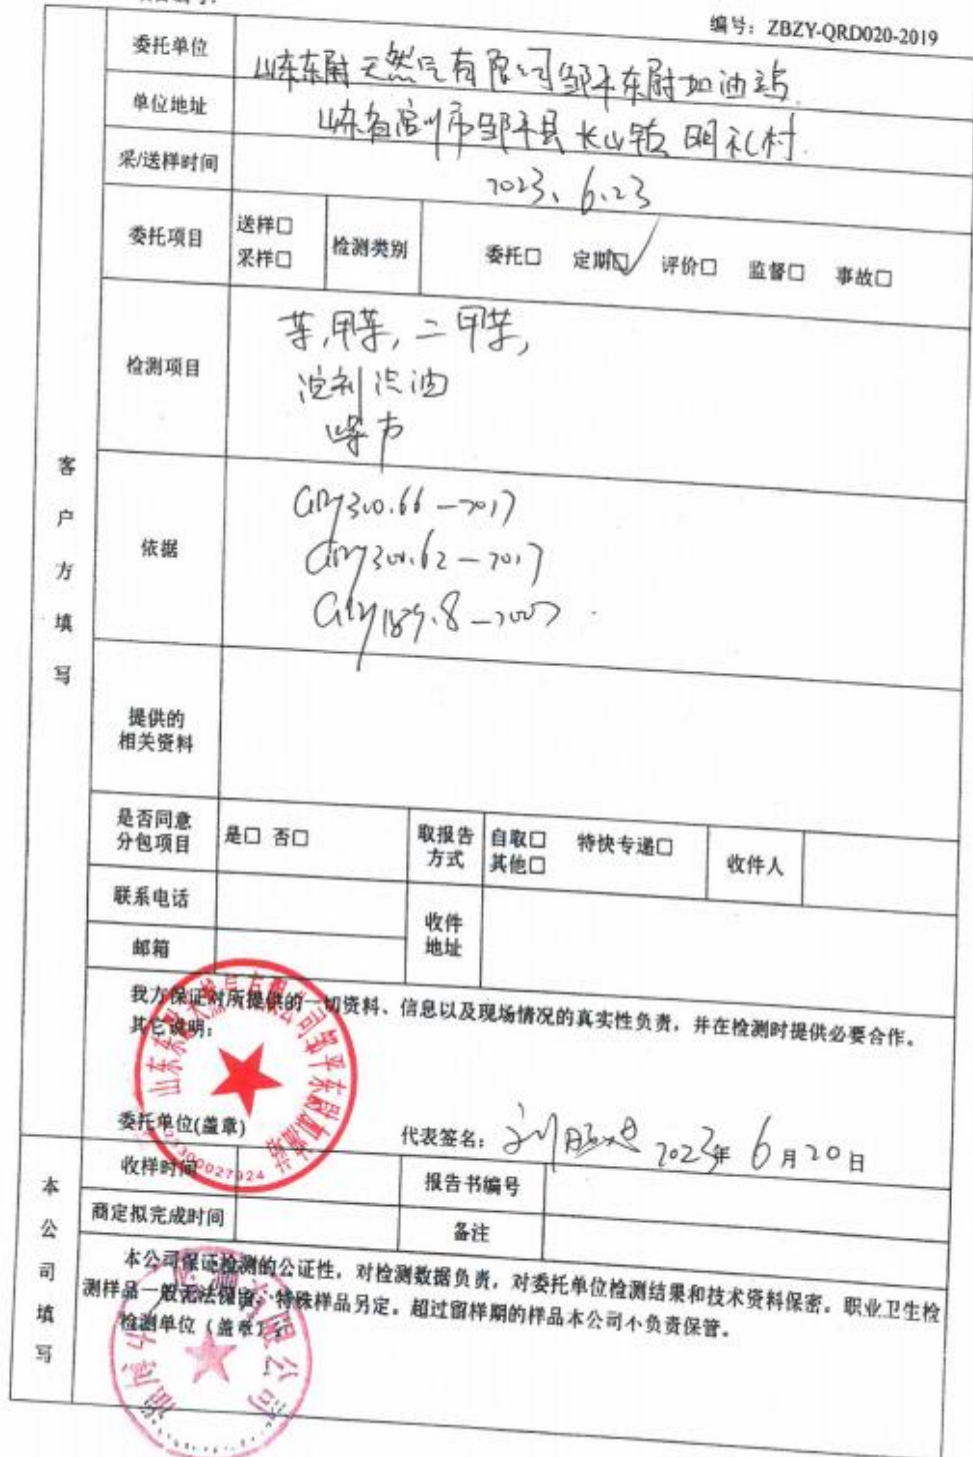 编号：ZBZY-QRD020-2019
委托单位 山东东尉天然气有限公司邹平东尉加油站
单位地址 山东省滨州市邹平县长山镇明礼村
采/送样时间 2023.6.23
委托项目 送样□ 采样□ 检测类别 委托□ 定期☑ 评价□ 监督□ 事故□
检测项目 苯,甲苯,二甲苯,
溶剂汽油
噪声
依据 GBZ/T300.66-2017
GBZ/T300.62-2017
GBZ/T189.8-2007
客户方填写
提供的
相关资料
是否同意
分包项目 是□ 否□ 取报告
方式 自取□ 特快专递□
其他□ 收件人
联系电话
收件
地址
邮箱
我方保证对所提供的一切资料、信息以及现场情况的真实性负责，并在检测时提供必要合作。
其它说明：
山东东尉天然气有限公司邹平东尉加油站
委托单位(盖章) 代表签名： 2023年6月20日
收样时间 报告书编号
商定拟完成时间 备注
本公司填写
本公司保证检测的公证性，对检测数据负责，对委托单位检测结果和技术资料保密。职业卫生检
测样品一般无法保留，特殊样品另定。超过留样期的样品本公司不负责保管。
检测单位（盖章）：